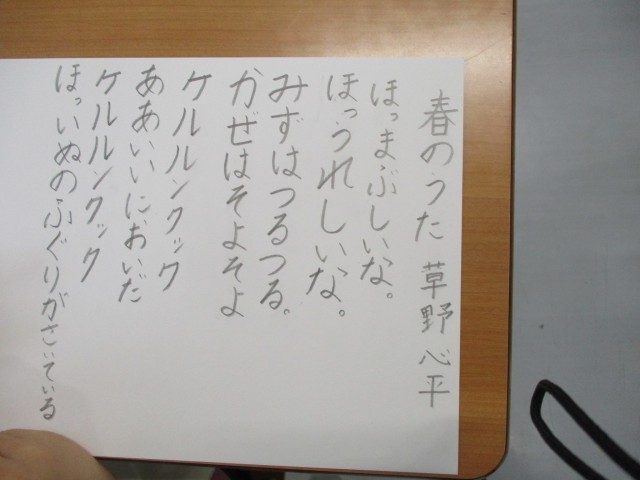 春のうた 草野心平
ほっまぶしいな。
ほっうれしいな。
みずはつるつる。
かぜはそよそよ
ケルルンクック
ああいいにおいだ
ケルルンクック
ほっいぬのふぐりがさいている